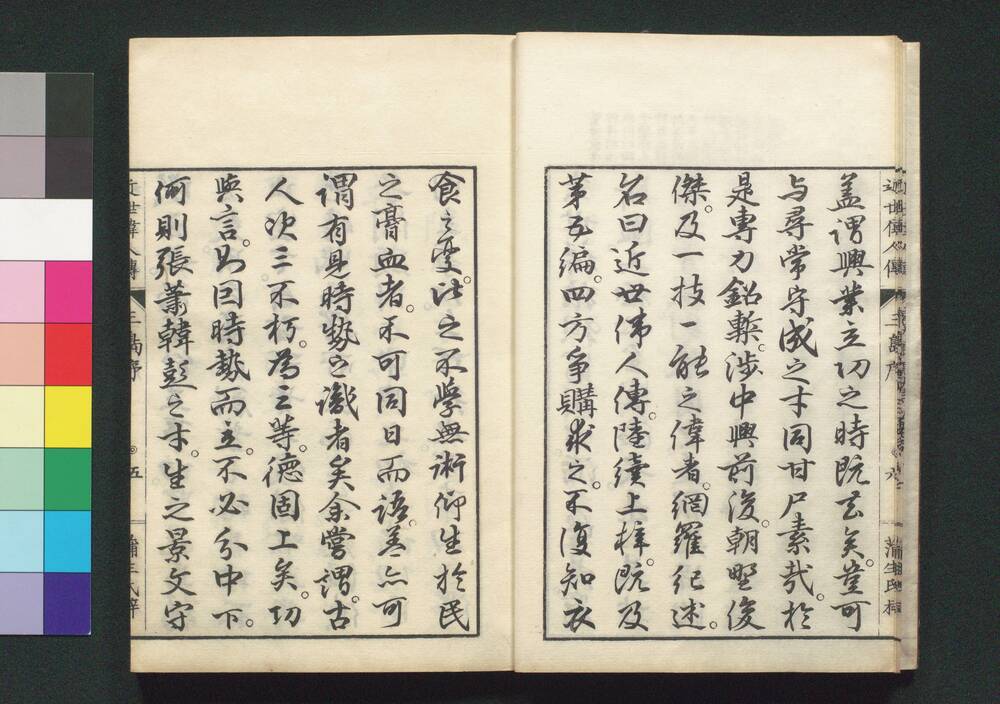 食之変。此之不學無術仰生於民
之膏血者。不可同日而語。盖亦可
謂有見時勢之識者矣余嘗謂。古
人次三不朽。為三等。德固上矣。功
與言。則因時勢而立。不必分中下。
何則張蕭韓彭之才。生之景文守
盖謂興業立功之時既去矣。豈可
与尋常守成之才同甘尸素哉。於
是專力鉛槧。涉中興前後。朝野俊
傑。及一技一能之偉者。網羅紀述。
名曰近世偉人傳。陸續上梓。既及
第五編。四方争購求之。不復知衣
近世偉人傳
三編序
五
蒲生氏梓